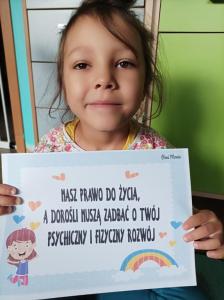 MASZ PRAWO DO ŻYCIA,
A DOROŚLI MUSZĄ ZADBAĆ O TWÓJ
PSYCHICZNY I FIZYCZNY ROZWÓJ